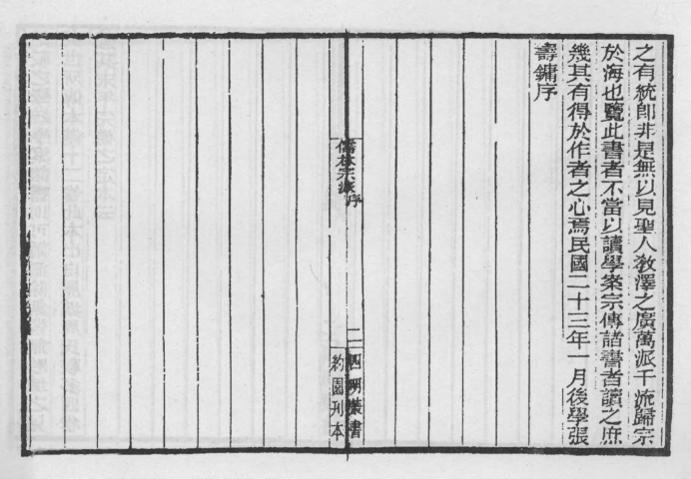 之有統即非是無以見聖人教澤之廣萬派千流歸宗
於海也覽此書者不當以讀學案宗傳諸書者讀之庶
幾其有得於作者之心焉民國二十三年一月後學張
壽鏞序
儒林宗派序
二
四明叢書
約園刊本